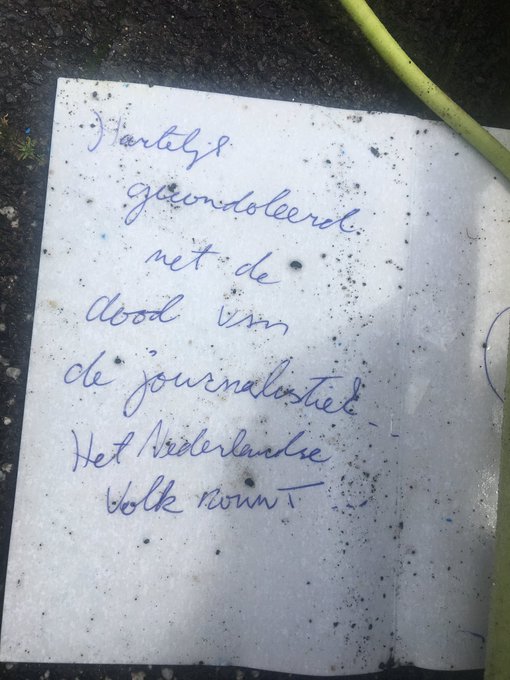 Hartelijk
gecondoleerd
met de
dood van
de journalistiek...
Het Nederlandse
Volk rouwt...